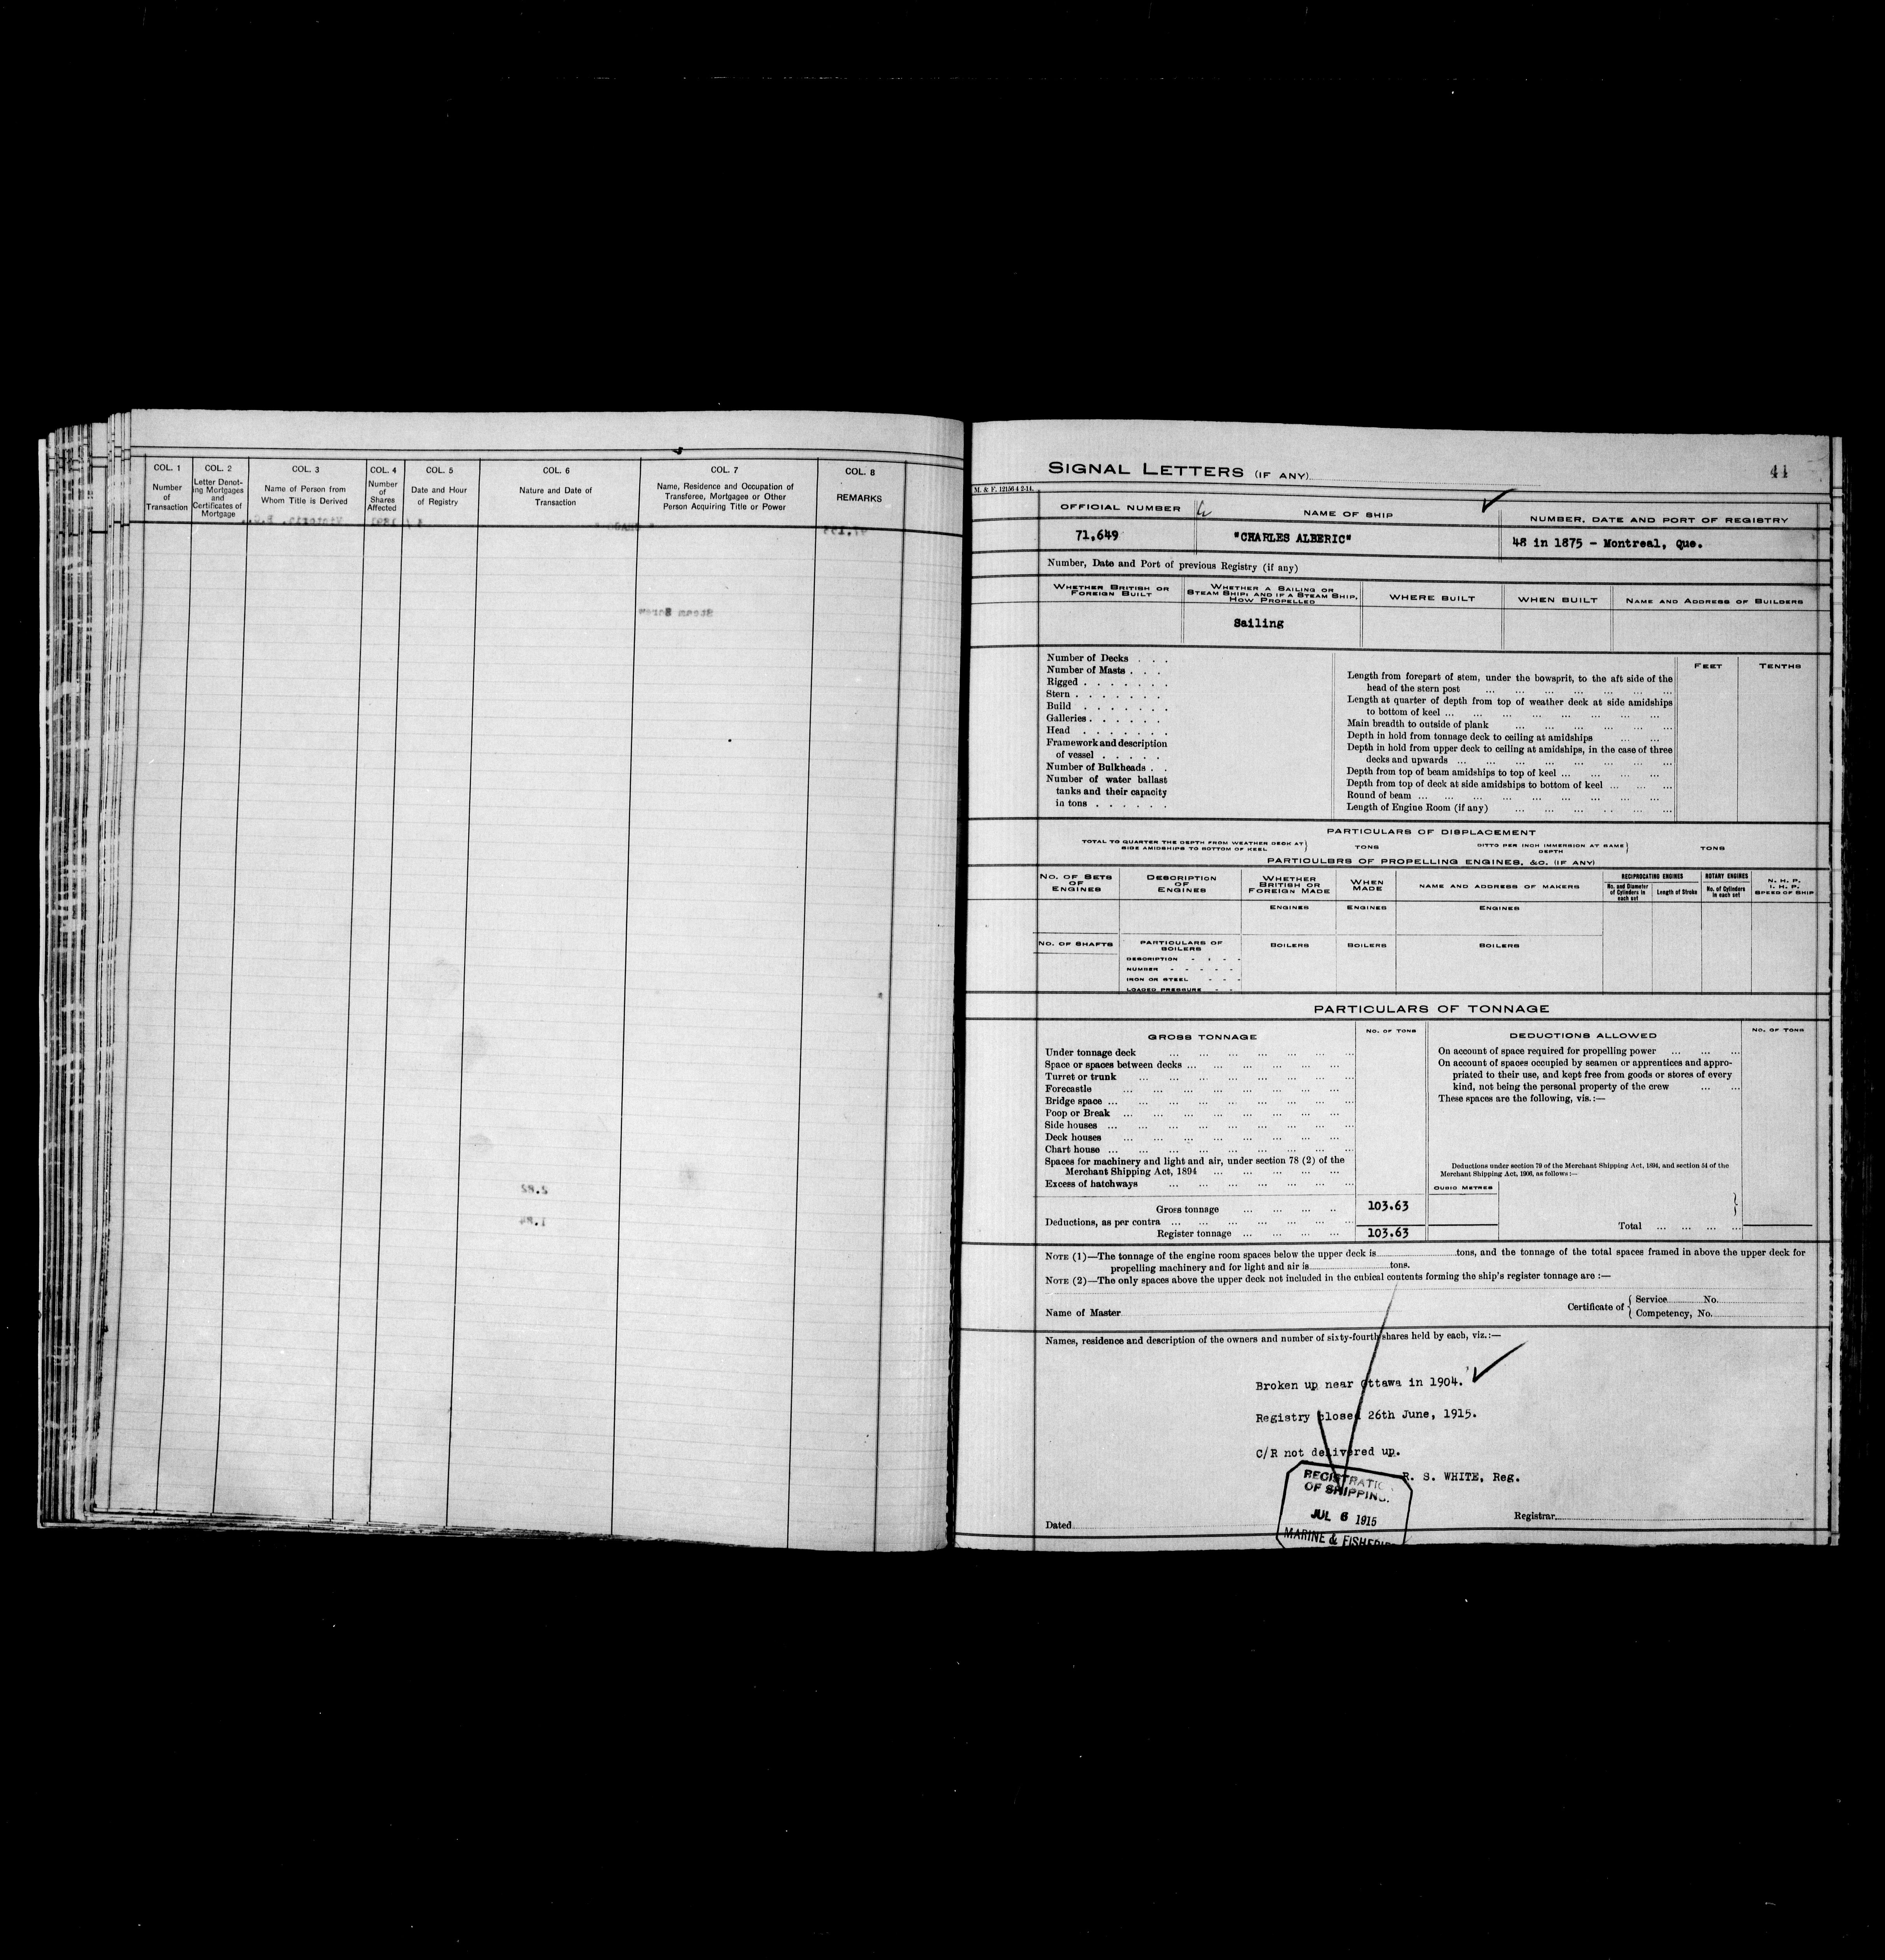 COL. 1
Number
of
Transaction
COL. 2
Letter Denot-
ing Mortgages
and
Certificates of
Mortgage
COL. 3
Name of Person from
Whom Title is Derived
COL. 4
Number
of
Shares
Affected
COL. 5
Date and Hour
of Registry
COL. 6
Nature and Date of
Transaction
COL. 7
Name, Residence and Occupation of
Transferee, Mortgagee or Other
Person Acquiring Title or Power
COL. 8
REMARKS
SIGNAL LETTERS (IF ANY)
41
M. & F. 12156 4 2-14.
OFFICIAL NUMBER
NAME OF SHIP
NUMBER, DATE AND PORT OF REGISTRY
71,649
"CHARLES ALBERIC"
48 in 1875 - Montreal, Que.
Number, Date and Port of previous Registry (if any)
WHETHER BRITISH OR
FOREIGN BUILT
WHETHER A SAILING OR
STEAM SHIP; AND IF A STEAM SHIP,
HOW PROPELLED
WHERE BUILT
WHEN BUILT
NAME AND ADDRESS OF BUILDERS
Sailing
Number of Decks . . .
Number of Masts . . .
Rigged . . . . . . .
Stern . . . . . . .
Build . . . . . . .
Galleries . . . . . .
Head . . . . . . .
Framework and description
of vessel . . . . .
Number of Bulkheads . .
Number of water ballast
tanks and their capacity
in tons . . . . . .
FEET
TENTHS
Length from forepart of stem, under the bowsprit, to the aft side of the
head of the stern post ... ... ... ... ... ... ...
Length at quarter of depth from top of weather deck at side amidships
to bottom of keel ... ... ... ... ... ... ... ...
Main breadth to outside of plank ... ... ... ... ... ...
Depth in hold from tonnage deck to ceiling at amidships ... ...
Depth in hold from upper deck to ceiling at amidships, in the case of three
decks and upwards ... ... ... ... ... ... ... ...
Depth from top of beam amidships to top of keel ... ... ... ...
Depth from top of deck at side amidships to bottom of keel ... ... ...
Round of beam ... ... ... ... ... ... ... ... ...
Length of Engine Room (if any) ... ... ... ... ... ...
PARTICULARS OF DISPLACEMENT
TOTAL TO QUARTER THE DEPTH FROM WEATHER DECK AT
SIDE AMIDSHIPS TO BOTTOM OF KEEL
TONS
DITTO PER INCH IMMERSION AT SAME
DEPTH
TONS
PARTICULBRS OF PROPELLING ENGINES, &C. (IF ANY)
NO. OF SETS
OF
ENGINES
DESCRIPTION
OF
ENGINES
WHETHER
BRITISH OR
FOREIGN MADE
WHEN
MADE
NAME AND ADDRESS OF MAKERS
RECIPROCATING ENGINES
No. and Diameter
of Cylinders in
each set
Length of Stroke
ROTARY ENGINES
No. of Cylinders
in each set
N. H. P.
I. H. P.
SPEED OF SHIP
ENGINES
ENGINES
ENGINES
NO. OF SHAFTS
PARTICULARS OF
BOILERS
BOILERS
BOILERS
BOILERS
DESCRIPTION - - - -
NUMBER - - - - -
IRON OR STEEL - - -
LOADED PRESSURE - -
PARTICULARS OF TONNAGE
GROSS TONNAGE
NO. OF TONS
DEDUCTIONS ALLOWED
NO. OF TONS
Under tonnage deck ... ... ... ... ... ... ...
Space or spaces between decks ... ... ... ... ... ...
Turret or trunk ... ... ... ... ... ... ...
Forecastle ... ... ... ... ... ... ... ...
Bridge space ... ... ... ... ... ... ... ...
Poop or Break ... ... ... ... ... ... ... ...
Side houses ... ... ... ... ... ... ... ...
Deck houses ... ... ... ... ... ... ... ...
Chart house ... ... ... ... ... ... ... ...
Spaces for machinery and light and air, under section 78 (2) of the
Merchant Shipping Act, 1894 ... ... ... ... ...
Excess of hatchways ... ... ... ... ... ... ...
Gross tonnage ... ... ... ..
103.63
Deductions, as per contra ... ... ... ... ... ... ...
Register tonnage ... ... ... ...
103.63
On account of space required for propelling power ... ... ...
On account of spaces occupied by seamen or apprentices and appro-
priated to their use, and kept free from goods or stores of every
kind, not being the personal property of the crew ... ...
These spaces are the following, vis.:—
Deductions under section 79 of the Merchant Shipping Act, 1894, and section 54 of the
Merchant Shipping Act, 1906, as follows:—
CUBIC METRES
Total ... ... ... ...
NOTE (1)—The tonnage of the engine room spaces below the upper deck is tons, and the tonnage of the total spaces framed in above the upper deck for
propelling machinery and for light and air is tons.
NOTE (2)—The only spaces above the upper deck not included in the cubical contents forming the ship's register tonnage are :—
Name of Master
Certificate of { Service No.
Competency, No.
Names, residence and description of the owners and number of sixty-fourth shares held by each, viz.:—
Broken up near Ottawa in 1904.
Registry closed 26th June, 1915.
C/R not delivered up.
R. S. WHITE, Reg.
REGISTRATIO
OF SHIPPING.
JUL 6 1915
MARINE & FISHERI
Dated
Registrar